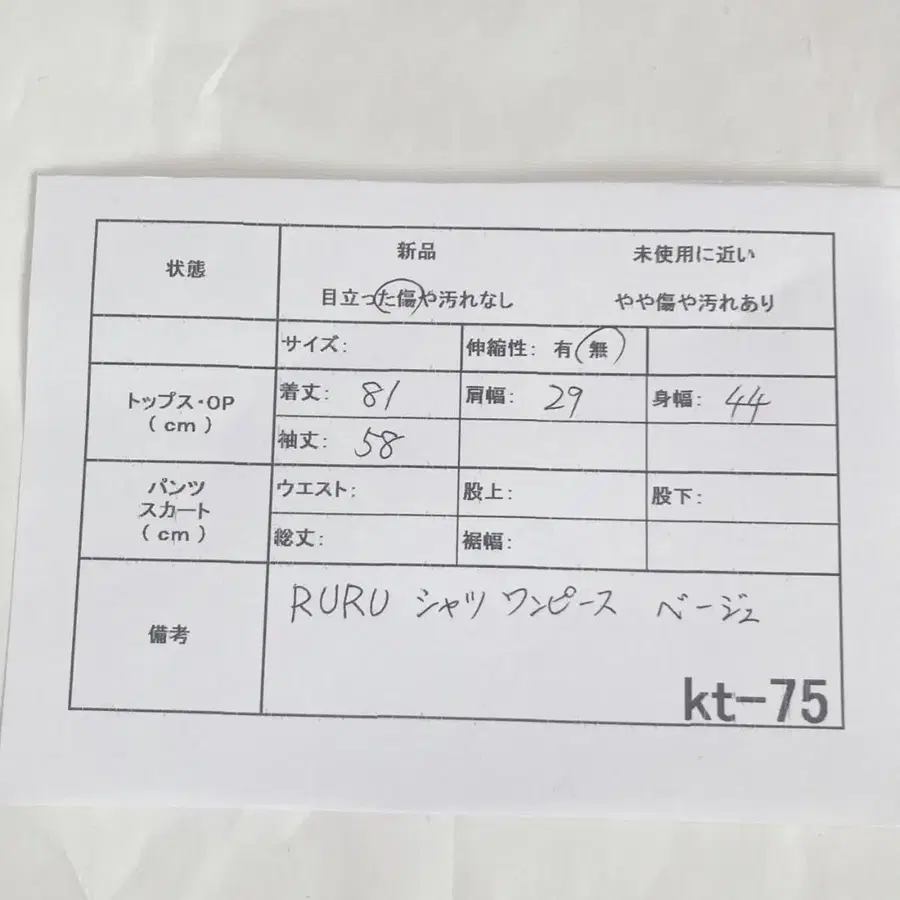 状態
新品 未使用に近い
目立った傷や汚れなし やや傷や汚れあり
サイズ: 伸縮性: 有 無
トップス・OP
(cm)
着丈: 81 肩幅: 29 身幅: 44
袖丈: 58
パンツ
スカート
(cm)
ウエスト: 股上: 股下:
総丈: 裾幅:
備考
RURU シャツワンピース ベージュ
kt-75